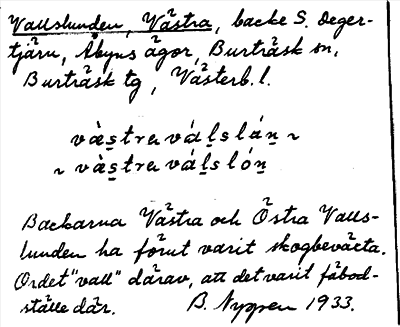 Vallslunden, Västra, backe S. Deger-
tjärn, Åbyns ägor, Burträsk sn,
Burträsk tg, Västerb. l.
vàs̱tra válḻslán̠ ~
~ vàs̱tra válḻslón̠
Backarna Västra och Östra Valls-
lunden ha förut varit skogbeväxta.
Ordet "vall" därav, att det varit fäbod-
ställe där. B. Nygren 1933.